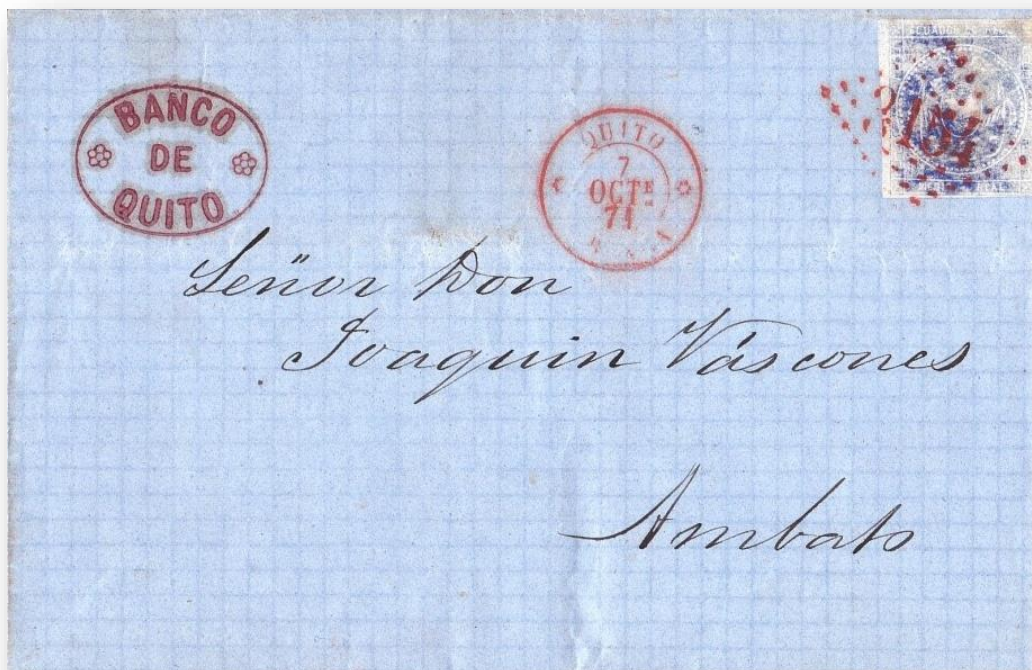 BANCO
DE
QUITO
QUITO
7
OCTE
71
Señor Don
Joaquin Váscones
Ambato